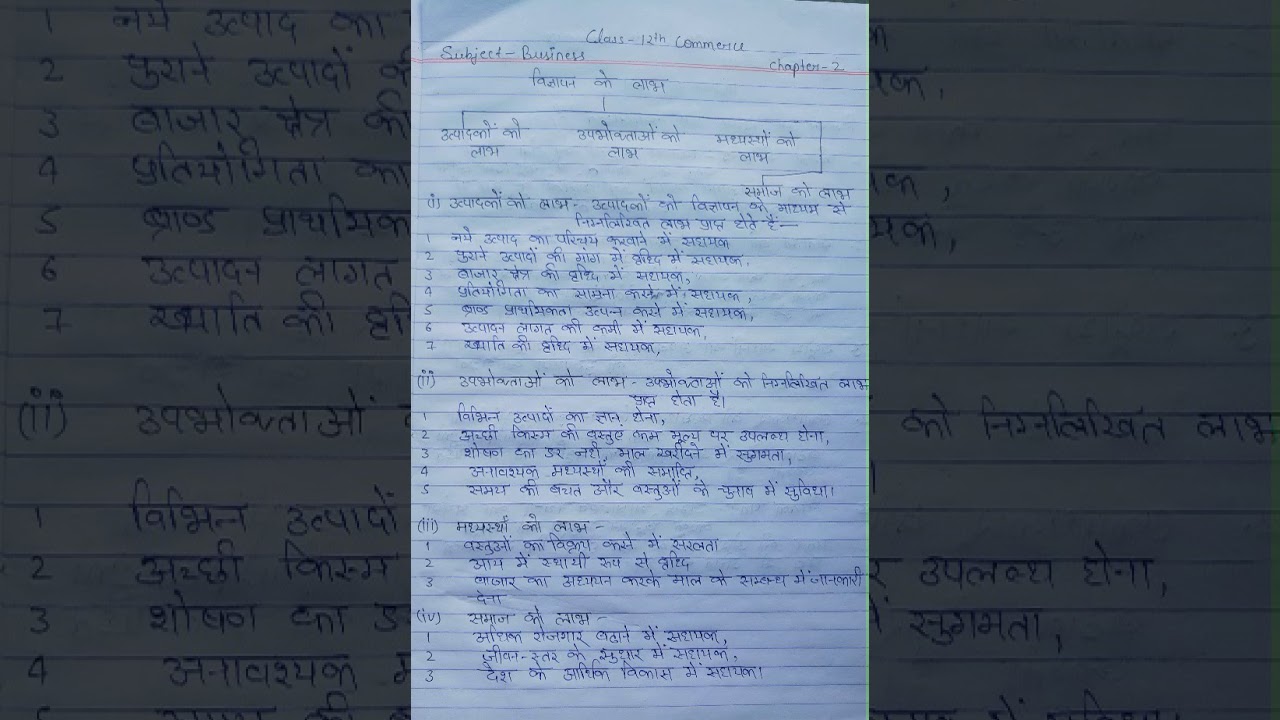 Class-12th Commerce
Subject-Business
Chapter-2
विज्ञापन के लाभ
उत्पादकों को लाभ
उपभोक्ताओं को लाभ
मध्यस्थों को लाभ
समाज को लाभ
(i) उत्पादकों को लाभ- उत्पादकों को विज्ञापन के माध्यम से
निम्नलिखित लाभ प्राप्त होते हैं—
1 नये उत्पाद का परिचय करवाने में सहायक
2 पुराने उत्पादों की मांग में वृध्दि में सहायक,
3 बाजार क्षेत्र की वृध्दि में सहायक,
4 प्रतियोगिता का सामना करने में सहायक,
5 ब्राण्ड प्राथमिकता उत्पन्न करने में सहायक,
6 उत्पादन लागत की कमी में सहायक,
7 ख्याति की वृध्दि में सहायक,
(ii) उपभोक्ताओं को लाभ- उपभोक्ताओं को निम्नलिखित लाभ
प्राप्त होता है।
1 विभिन्न उत्पादों का ज्ञान होना,
2 अच्छी किस्म की वस्तुएं कम मूल्य पर उपलब्ध होना,
3 शोषण का डर नहीं, माल खरीदने में सुगमता,
4 अनावश्यक मध्यस्थों की समाप्ति,
5 समय की बचत और वस्तुओं के चुनाव में सुविधा।
(iii) मध्यस्थों को लाभ -
1 वस्तुओं का विक्रय करने में सरलता
2 आय में स्थायी रूप से वृध्दि
3 बाजार का अध्ययन करके माल के सम्बन्ध में जानकारी
देना
(iv) समाज को लाभ -
1 अधिक रोजगार बढ़ाने में सहायक,
2 जीवन-स्तर के सुधार में सहायक,
3 देश के आर्थिक विकास में सहायक।